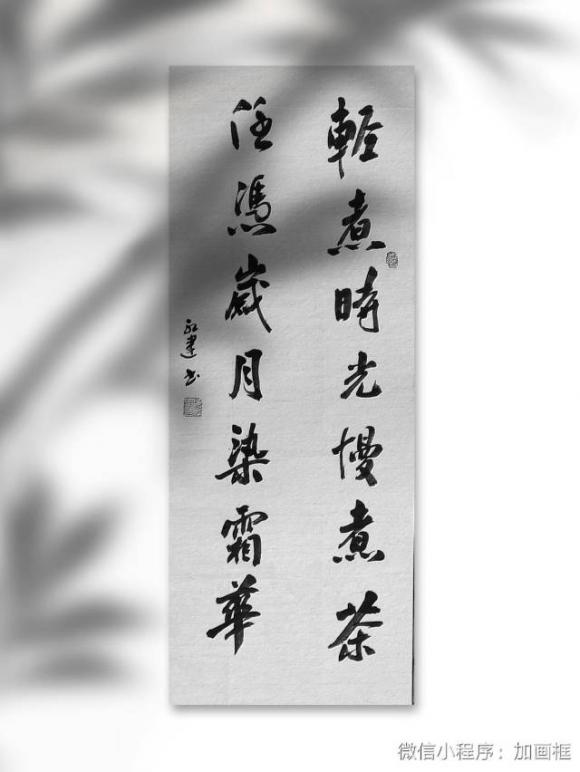 輕煮時光慢煮茶
任憑歲月染霜華
微信小程序：加画框